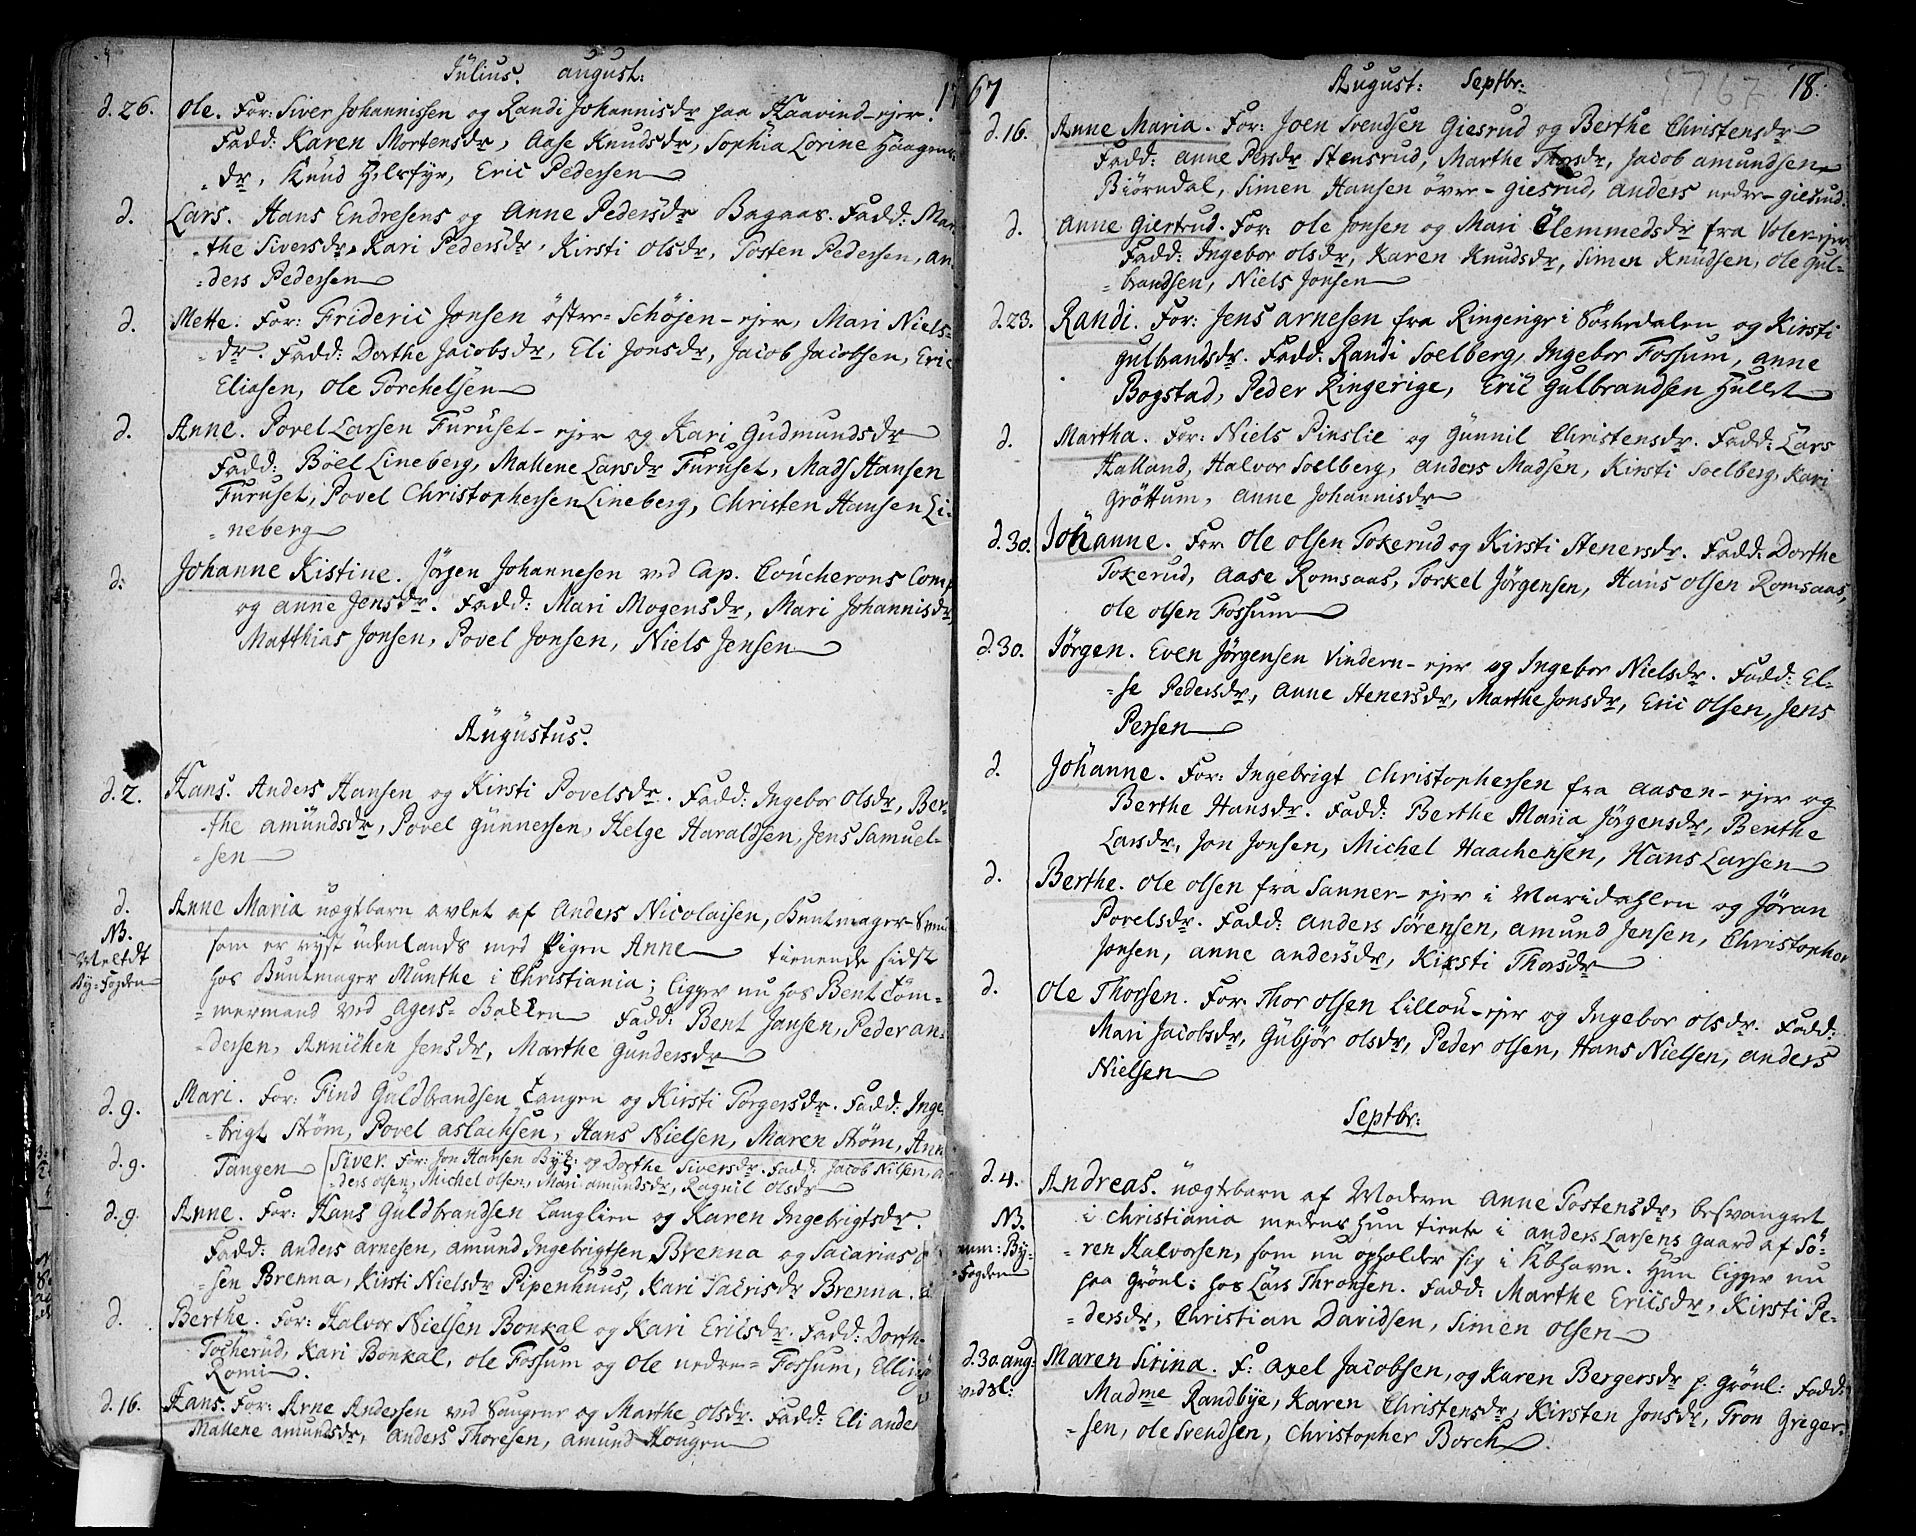 Julius. august:
d. 26. Ole. For: Siver Johannissen og Randi Johannisdr paa Haavind-ejer.
Fadd: Karen Mortensdr, Aase Knudsdr, Sophia Lorine Haagens-
-dr, Knud Hilsfyr, Eric Pedersen
d. Lars. Hans Endresens og Anne Pedersdr Bagaas. Fadd: Mar-
-the Siversdr, Kari Pedersdr, Kirsti Olsdr, Tosten Pedersen, An-
-ders Pedersen
d. Mette. For: Frideric Jonsen östre-Schöjen-ejer, Mari Niels-
-dr. Fadd: Dorthe Jacobsdr, Eli Jonsdr, Jacob Jacobsen, Eric
Eliasen, Ole Torchelsen
d. Anne. Povel Larsen Furuset-ejer og Kari Gudmundsdr
Fadd: Böel Lineberg, Mallene Larsdr Furuset, Mads Hansen
Furuset, Povel Christophersen Lineberg, Christen Hansen Li-
-neberg
d: Johanne Kistine. Jørgen Johannesen ved Cap. Coucherons Comp
og Anne Jensdr. Fadd: Mari Mogensdr, Mari Johannisdr,
Matthias Jonsen, Povel Jonsen, Niels Jensen
Augustus.
d. 2. Hans. Anders Hansen og Kirsti Povelsdr. Fadd: Ingebor Olsdr, Ber-
-the Amundsdr, Povel Gunnersen, Helge Haraldsen, Jens Samuel-
-sen
d. Anne Maria uægtbarn avlet af Anders Nicolaisen, Buntmager-
NB. som er rejst udenlands med Pigen Anne tienende sidst
Meldt hos Buntmager Munthe i Christiania; ligger nu hos Bent Töm-
By-Fogden -mermand ved Agers-Bakken Fadd: Bent Jansen, Peder An-
-dersen, Annichen Jensdr, Marthe Gundersdr
d. 9. Mari. For: Find Guldbrandsen Tangen og Kirsti Torgersdr. Fadd: Inge-
-brigt Strøm, Povel Aslachsen, Hans Nielsen, Maren Strøm, Ann
Tangen
d. 9. Siver. For: Jon Hansen Byk: og Dorthe Siversdr. Fadd: Jacob Nilsen, An-
-ders Olsen, Michel Olsen, Mari Amundsdr, Ragnil Olsdr
d. 9. Anne. For: Hans Guldbrandsen Langlien og Karen Ingebrigtsdr.
Fadd: Anders Arnesen, Amund Ingebrigtsen Brenna og Sacarias
-sen Brenna, Kirsti Nielsdr Pipenhuus, Kari Sacrisdr Brenna.
d. Berthe. For: Halvor Nielsen Bonkal og Kari Ericsdr. Fadd: Dorth-
Tocherud, Kari Bonkal, Ole Fossum og Ole nedre-Fossum, Elling
Romi
d. 16. Hans. For: Arne Andersen ved Saugene og Marthe Olsdr. Fadd: Eli Ander
Mallene Amundsdr, Anders Thoresen, Amund Kongen
1767
August: Septbr: 1767 18.
d. 16. Anne Maria. For: Joen Svendsen Giesrud og Berthe Christensdr
Fadd: Anne Persdr Stensrud, Marthe Thorsdr, Jacob Amundsen
Biörndal, Simen Hansen övre-Giesrud, Anders nedre-Giesrud.
d. Anne Giertrud. For: Ole Jonsen og Mari Clemmedsdr fra Volen-ejer
Fadd: Ingebor Olsdr, Karen Knudsdr, Simen Knudsen, Ole Gul-
-brandsen, Niels Jonsen
d. 23. Randi. For: Jens Arnesen fra Ringerige i Sörkedalen og Kirsti
Gulbrandsdr. Fadd. Randi Soelberg, Ingebor Fossum, Anne
Bogstad, Peder Ringerige, Eric Gulbrandsen Hullet
d. Martha. For: Niels Pinslie og Gunnil Christensdr. Fadd: Lars
Halland, Halvor Soelberg, Anders Madsen, Kirsti Soelberg, Kari
Gröttum, Anne Johannisdr
d. 30. Johanne. For. Ole Olsen Tokerud og Kirsti Stenersdr. Fadd: Dorthe
Tokerud, Aase Romsaas, Torkel Jørgensen, Hans Olsen Romsaas,
Ole Olsen Fossum
d. 30. Jørgen. Even Jørgensen Vindern-ejer og Ingebor Nielsdr. Fadd: El-
-se Pedersdr, Anne Stenersdr, Marthe Jonsdr, Eric Olsen, Jens
Persen
d. Johanne. For: Ingebrigt Christophersen fra Aasen-ejer og
Berthe Hansdr. Fadd: Berthe Maria Jörgensdr, Berthe
Larsdr, Jon Jonsen, Michel Haachensen, Hans Larsen
d. Berthe. Ole Olsen fra Sanner-ejer i Maridahlen og Jöran
Povelsdr. Fadd: Anders Sörensen, Amund Jensen, Christopher
Jonsen, Anne Andersdr, Kirsti Thorsdr
d. Ole Thorsen. For: Thor Olsen Lillou-ejer og Ingebor Olsdr. Fadd:
Mari Jacobsdr, Gubjör Olsdr, Peder Olsen, Hans Nielsen, Anders
Nielsen
Septbr:
d. 4. Andreas. uægtebarn af Moderen Anne Tostensdr, besvangret
NB. i Christiania medens hun tiente i Anders Larsens Gaard af Sö-
num: By- -ren Halvorsen, som nu opholder sig i Kbhavn. Hun ligger nu
-Fogden paa Grönl: hos Lars Thronsen. Fadd: Marthe Ericsdr, Kirsti Pe-
-dersdr, Christian Davidsen, Simen Olsen
d. 30. aug: Maren Sirina. F: Axel Jacobsen, og Karen Bergersdr p: Grönl: Fadd:
Madme Randbye, Karen Christensdr, Kirsten Jonsdr, Tron Greger-
-sen, Ole Svendsen, Christopher Borch